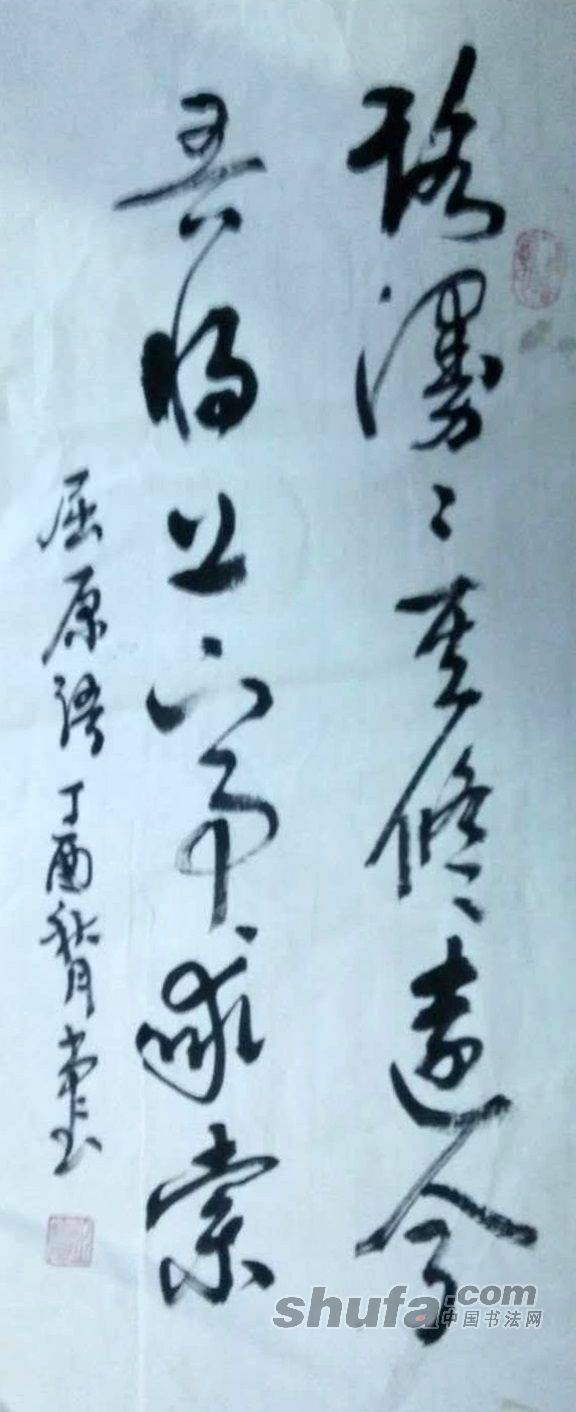 路漫々其修远兮
吾将上下而求索
屈原语 丁酉秋月
shufa.com
中国书法网